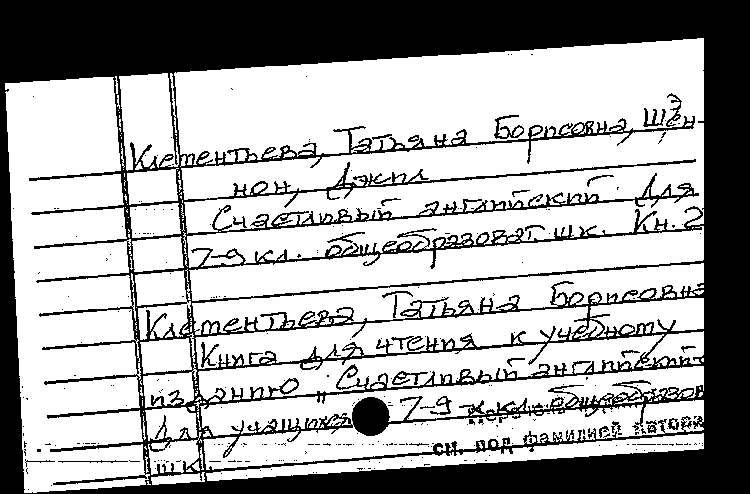 Клементьева, Татьяна Борисовна, Шэн-
нон, Джил
Счастливый английский. Для
7-9 кл. общеобразоват. шк. Кн. 2
Клементьева, Татьяна Борисовна
Книга для чтения к учебному
изданию „Счастливый английский-
Для учащихся 7-9 кл. общеобразов
шк.
см. под фамилией автора